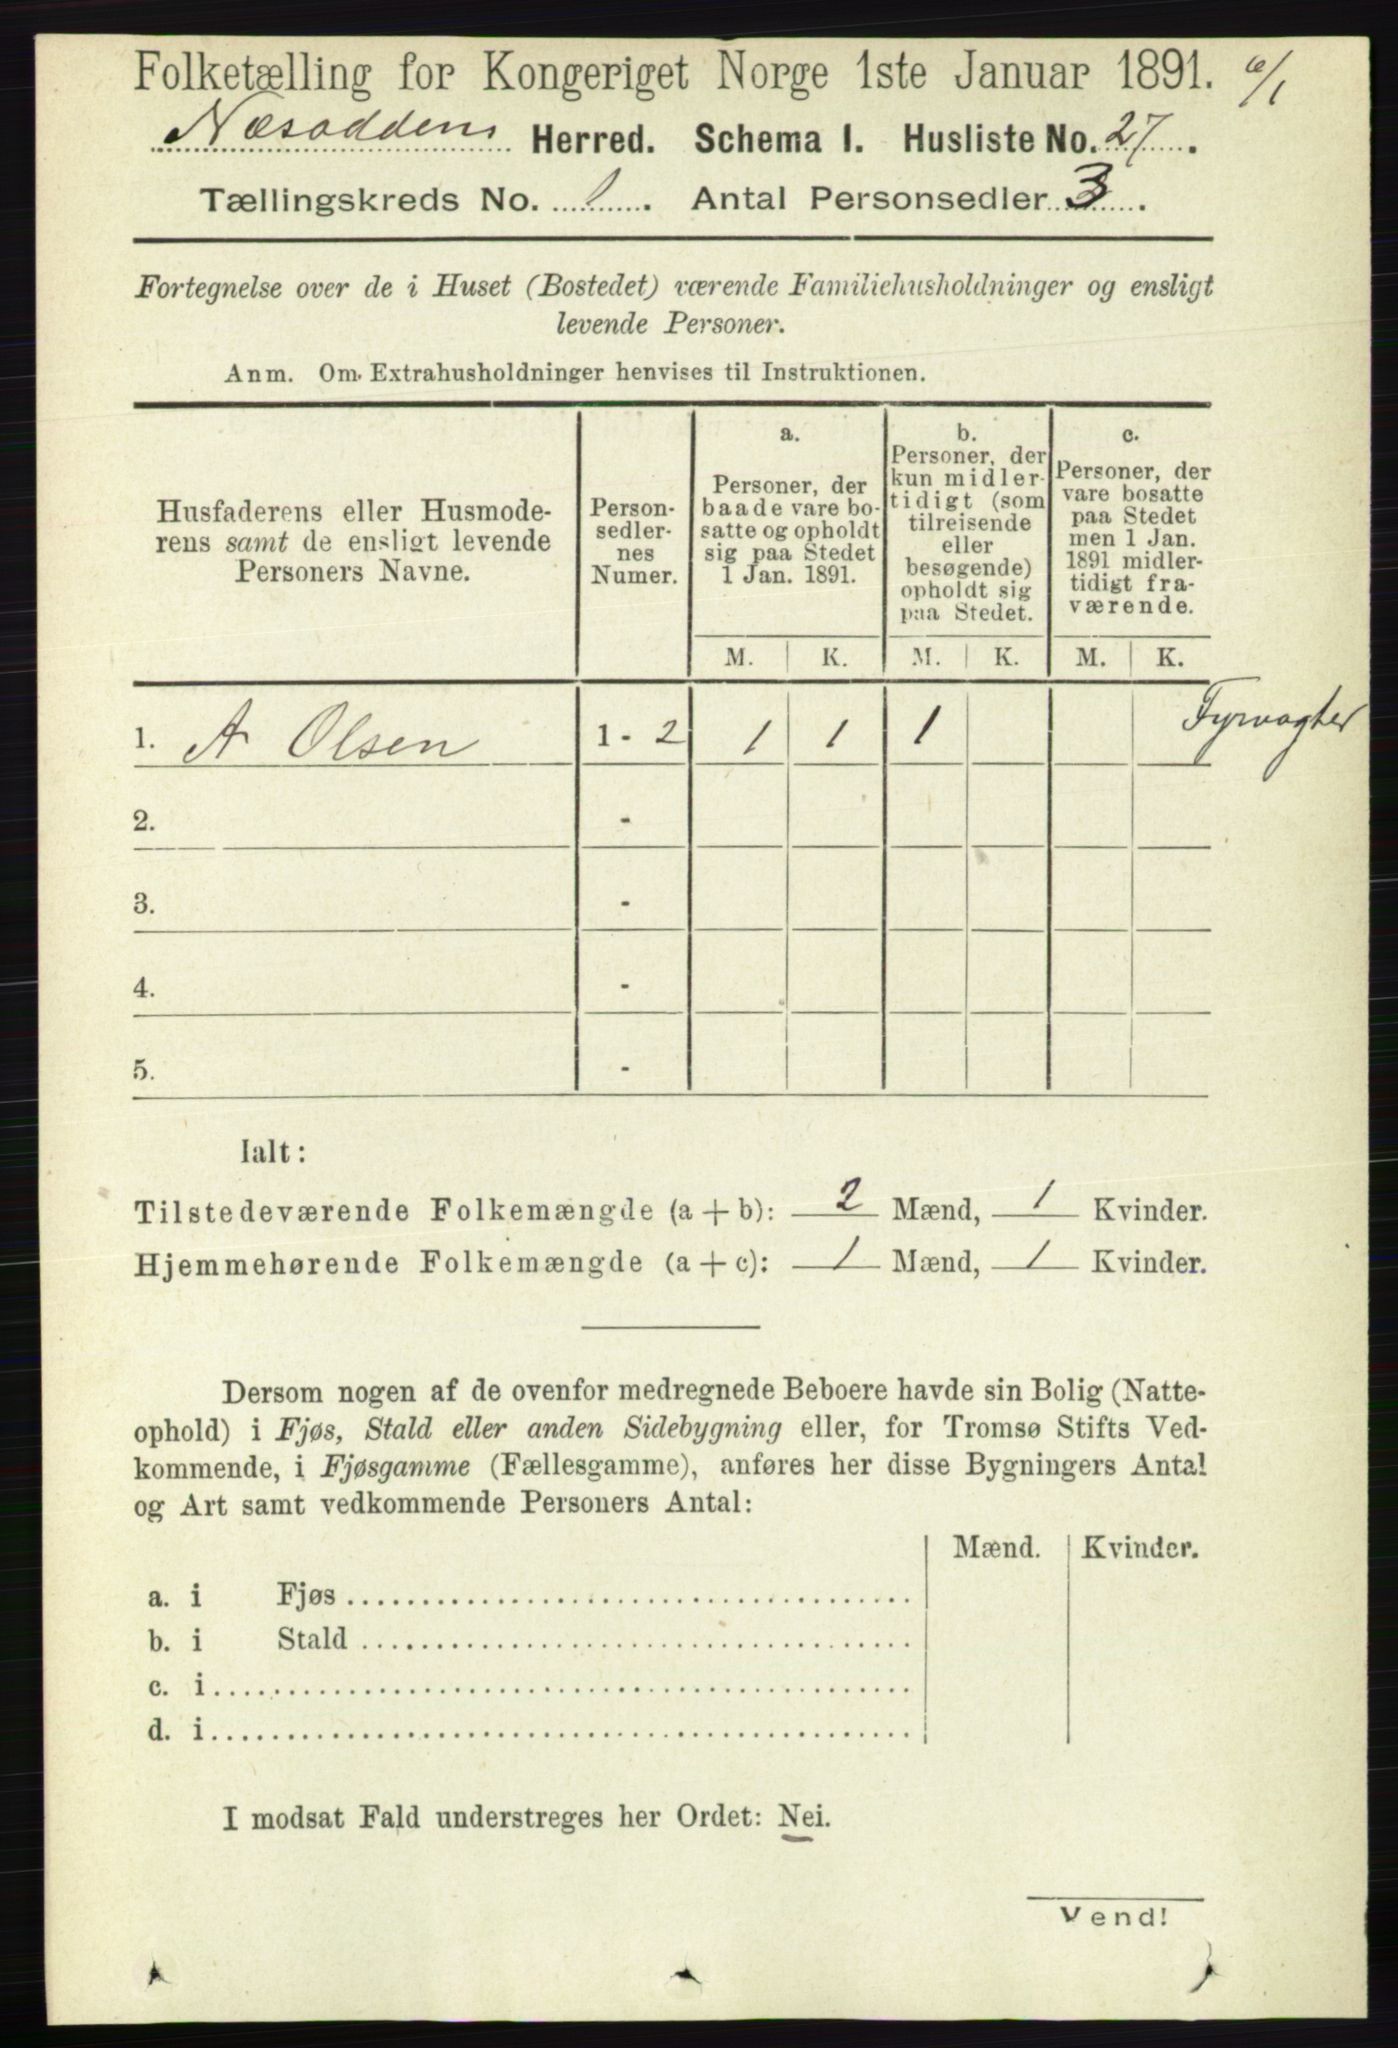 Folketælling for Kongeriget Norge 1ste Januar 1891. 6/1
Næsoddens Herred. Schema I. Husliste No. 27.
Tællingskreds No. 1. Antal Personsedler 3.
Fortegnelse over de i Huset (Bostedet) værende Familiehusholdninger og ensligt
levende Personer.
Anm. Om Extrahusholdninger henvises til Instruktionen.
Husfaderens eller Husmode-
rens samt de ensligt levende
Personers Navne.
Person-
sedler-
nes
Numer.
a.
Personer, der
baade vare bo-
satte og opholdt
sig paa Stedet
1 Jan. 1891.
b.
Personer, der
kun midler-
tidigt (som
tilreisende
eller
besøgende)
opholdt sig
paa Stedet.
c.
Personer, der
vare bosatte
paa Stedet
men 1 Jan.
1891 midler-
tidigt fra-
værende.
M. K. M. K. M. K.
1. A Olsen 1 - 2 1 1 1 Fyrvogter
2. -
3. -
4. -
5. -
Ialt:
Tilstedeværende Folkemængde (a + b): 2 Mænd, 1 Kvinder.
Hjemmehørende Folkemængde (a + c): 1 Mænd, 1 Kvinder.
Dersom nogen af de ovenfor medregnede Beboere havde sin Bolig (Natte-
ophold) i Fjøs, Stald eller anden Sidebygning eller, for Tromsø Stifts Ved-
kommende, i Fjøsgamme (Fællesgamme), anføres her disse Bygningers Antal
og Art samt vedkommende Personers Antal:
Mænd. Kvinder.
a. i Fjøs
b. i Stald
c. i
d. i
I modsat Fald understreges her Ordet: Nei.
Vend!